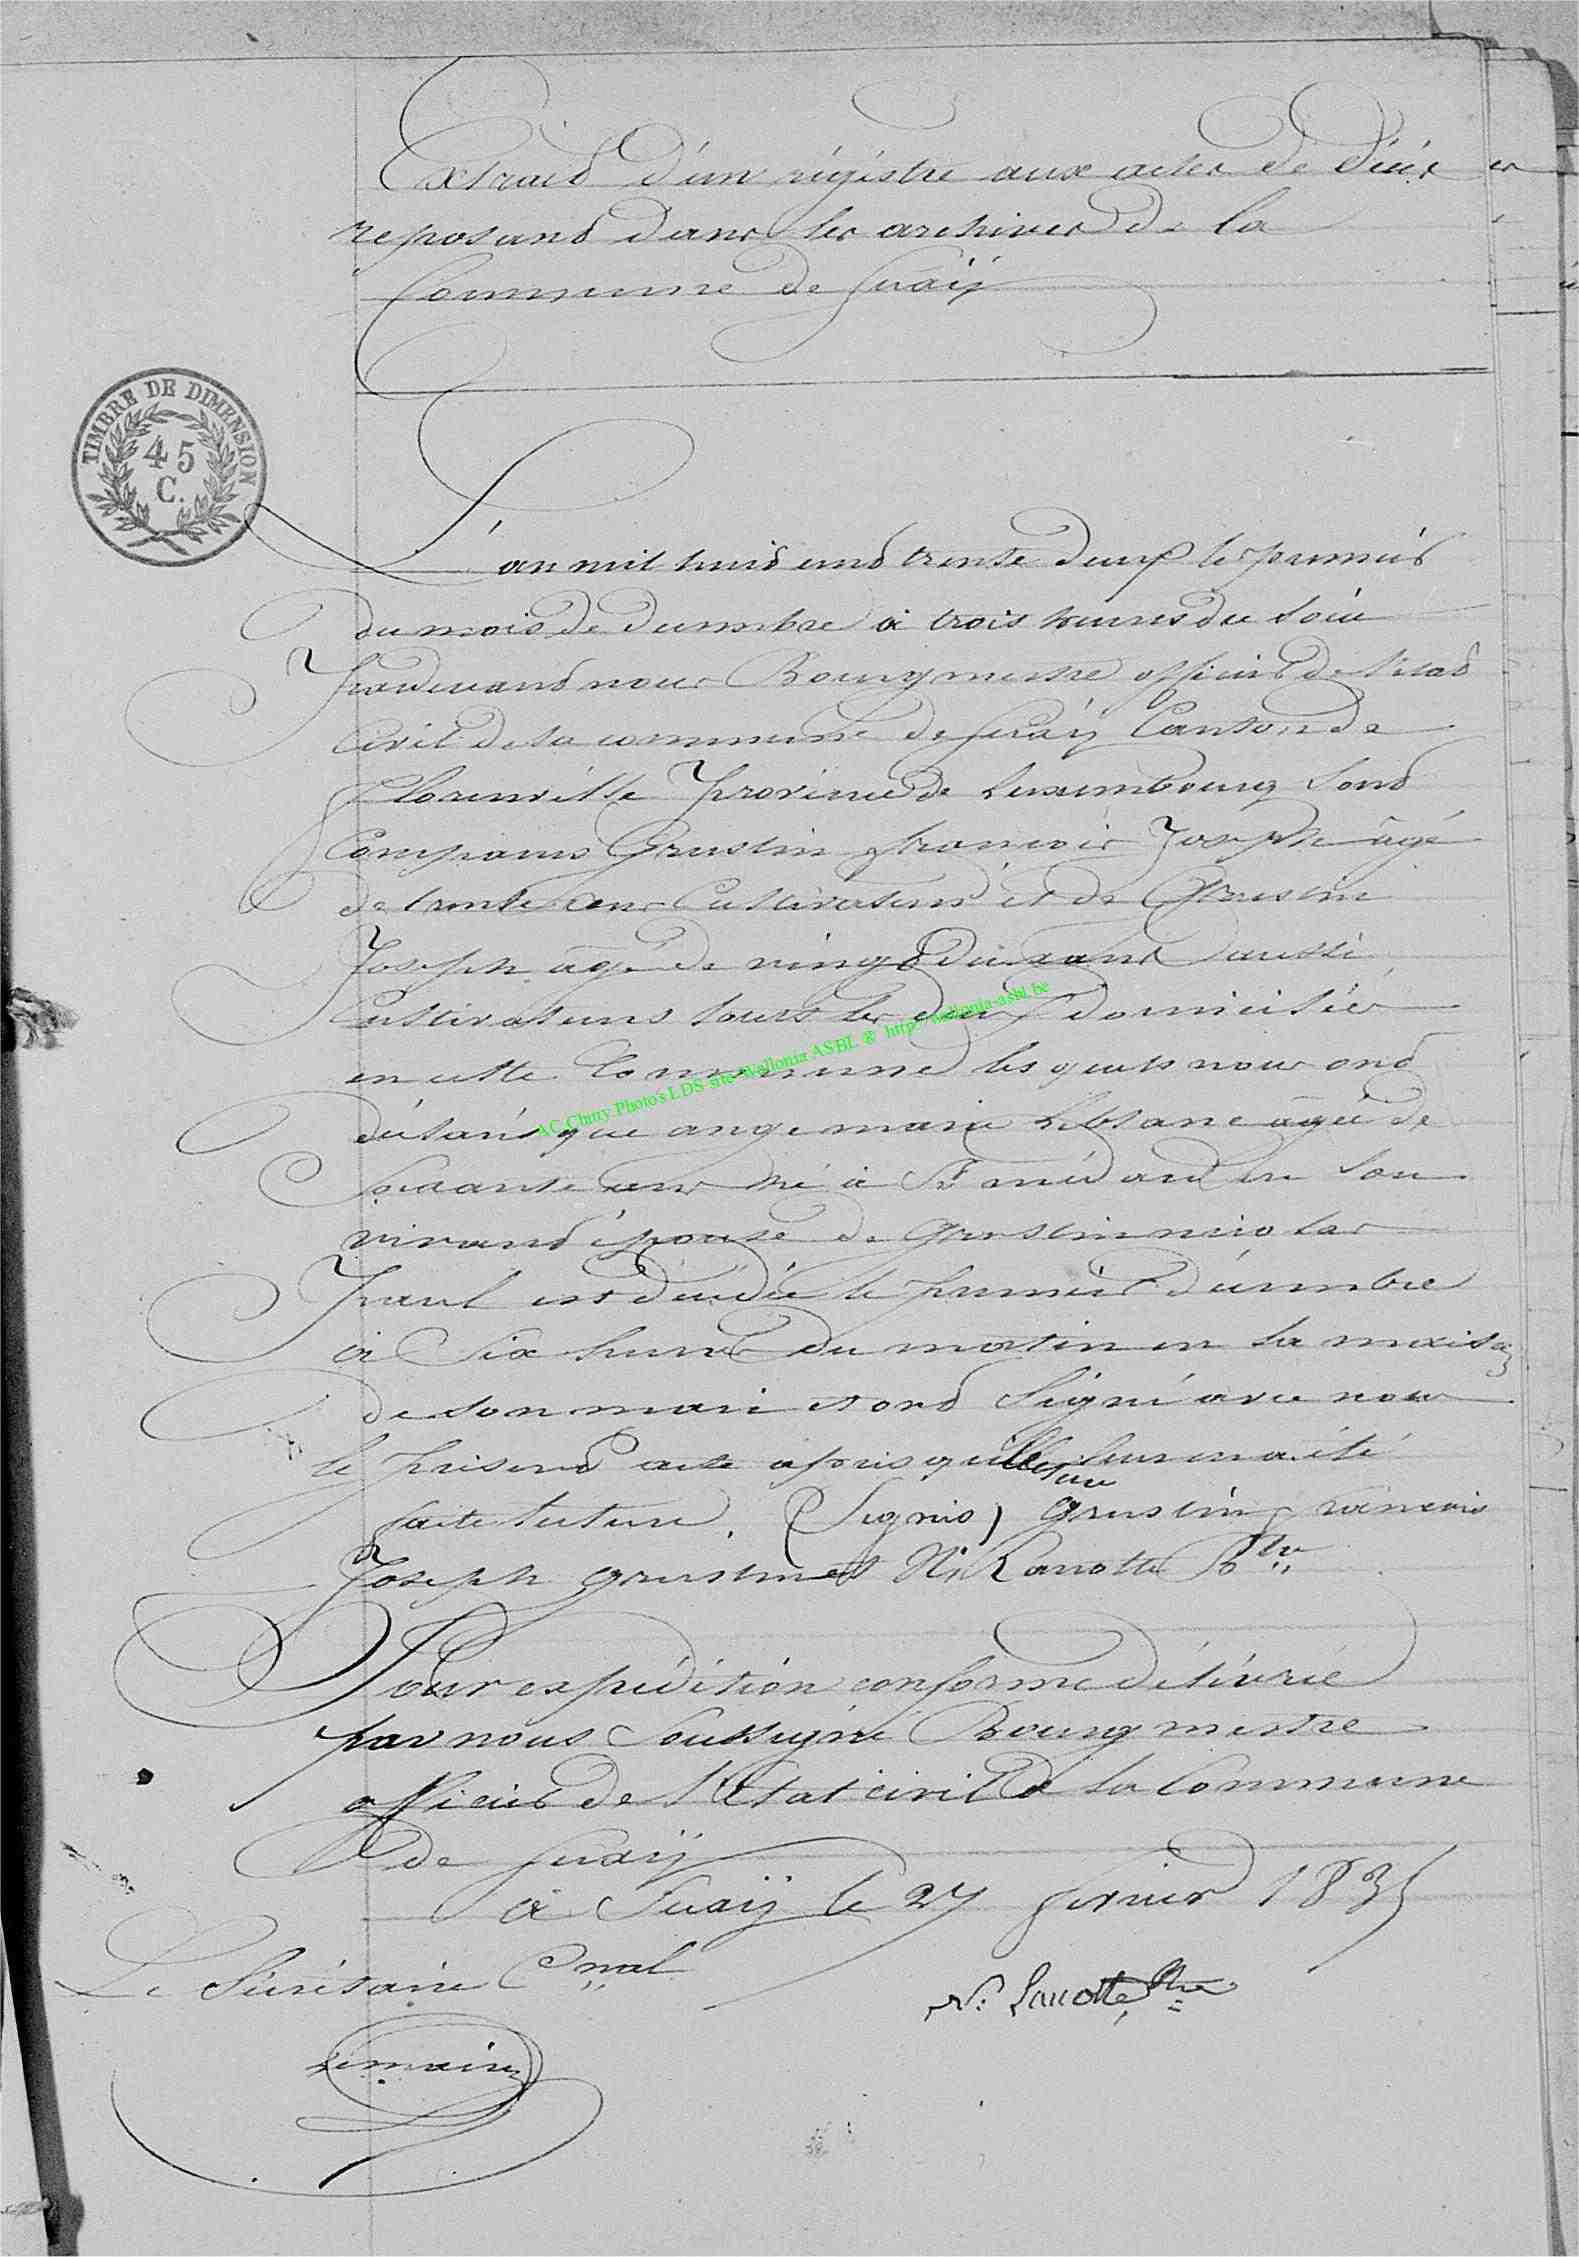 Extrait d'un régistre aux actes de décès
reposant dans les archives de la
Commune de Suxÿ
TIMBRE DE DIMENSION
45
C.
L'an mil huit cent trente deux le premier
du mois de decembre à trois heures du soir
Pardevant nous Bourgmestre officier de l'etat
Civil de la commune de Suxÿ Canton de
Florenville Province de Luxembourg Sont
Comparus Grustin francois Joseph âgé
de trente ans Cultivateur et de Grustin
Joseph âgé de vingt dix ans aussi
Cultivateurs tous les deux domiciliés
en cette Commune les quels nous ont
déclaré que ange marie âgée de
Soixante ans né à St médard en Son
vivant épouse de Grustin nicolas
Paul est décédée le premier décembre
à Six heures du matin en la maison
de son mari et ont Signé avec nous
le présent acte après que leur en a été
faite lecture. (Signés) Grustin francois
Joseph Grustin et N. Lanotte Btre
Pour expédition conforme délivrée
par nous Soussigné Bourgmestre
officier de l'Etat civil de la Commune
de Suxÿ
à Suxÿ le 27 fevrier 1835
Le Sécrétaire Cnal
N. Lanotte Btre
AC Chiny Photo's LDS site Wallonia ASBL @ http://wallonia-asbl.be